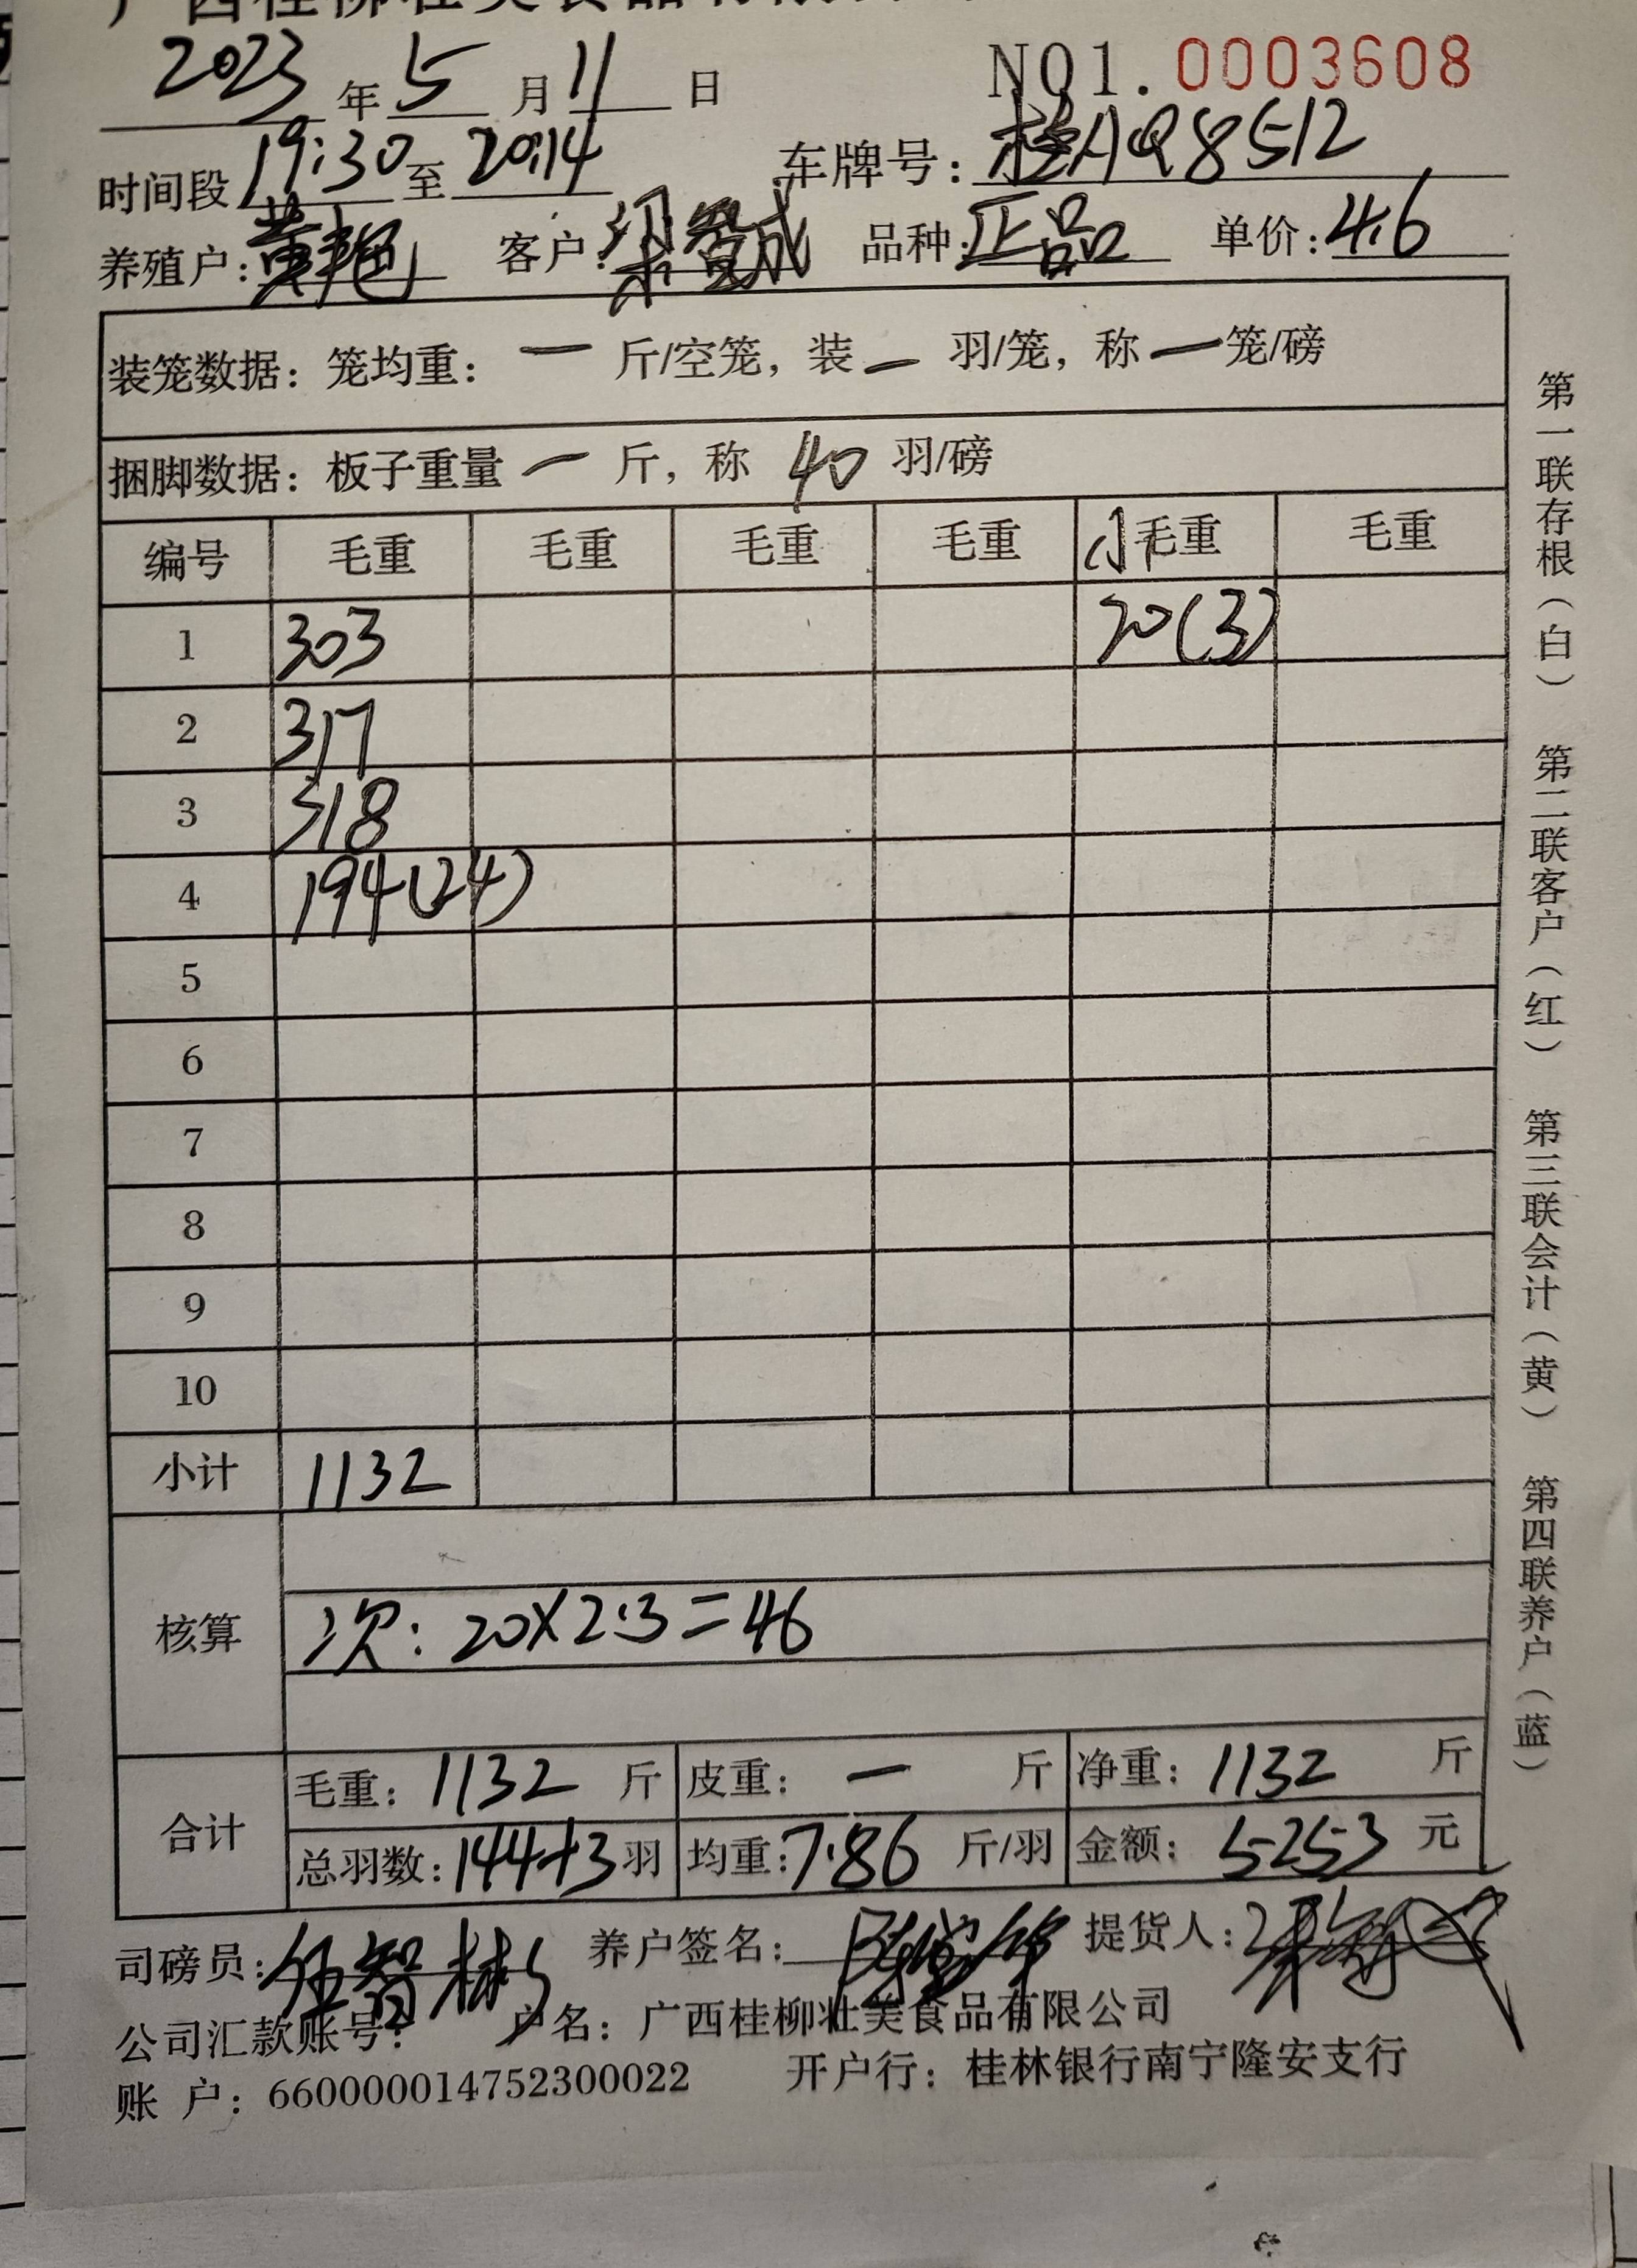 2023年5月11日 NO1.0003608
时间段19:30至20:14 车牌号:桂AQ8512
养殖户:黄艳 客户:梁智成 品种:正品 单价:4.6
装笼数据:笼均重:一斤/空笼,装一羽/笼,称一笼/磅
捆脚数据:板子重量一斤,称40羽/磅
编号 毛重 毛重 毛重 毛重 小毛重 毛重
1 303 20(3)
2 317
3 318
4 194(24)
5
6
7
8
9
10
小计 1132
核算 次:20×2.3=46
合计 毛重:1132斤 皮重:一斤 净重:1132斤
总羽数:144+3羽 均重:7.86斤/羽 金额:5253元
司磅员:伍智彬 养户签名: 提货人:
公司汇款账号: 户名:广西桂柳壮美食品有限公司
账 户:660000014752300022 开户行:桂林银行南宁隆安支行
第一联存根(白) 第二联客户(红) 第三联会计(黄) 第四联养户(蓝)